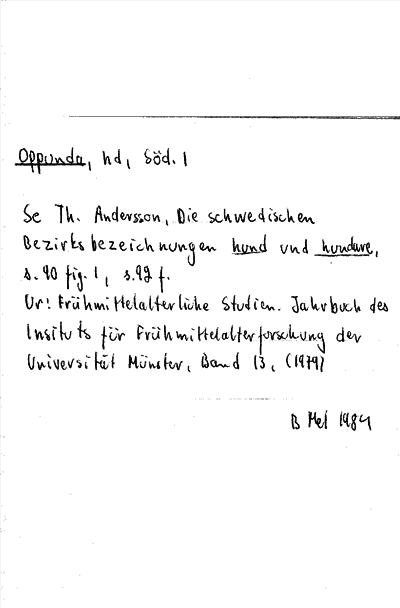 Oppunda, hd, Söd. l
Se Th. Andersson, Die schwedischen
Bezirksbezeichnungen hund und hundare,
s. 90 fig. 1, s. 92 f.
Ur: Frühmittelalterliche Studien. Jahrbuch des
Insituts für Frühmittelalterforschung der
Universität Münster, Band 13, (1979)
B Mel 1984